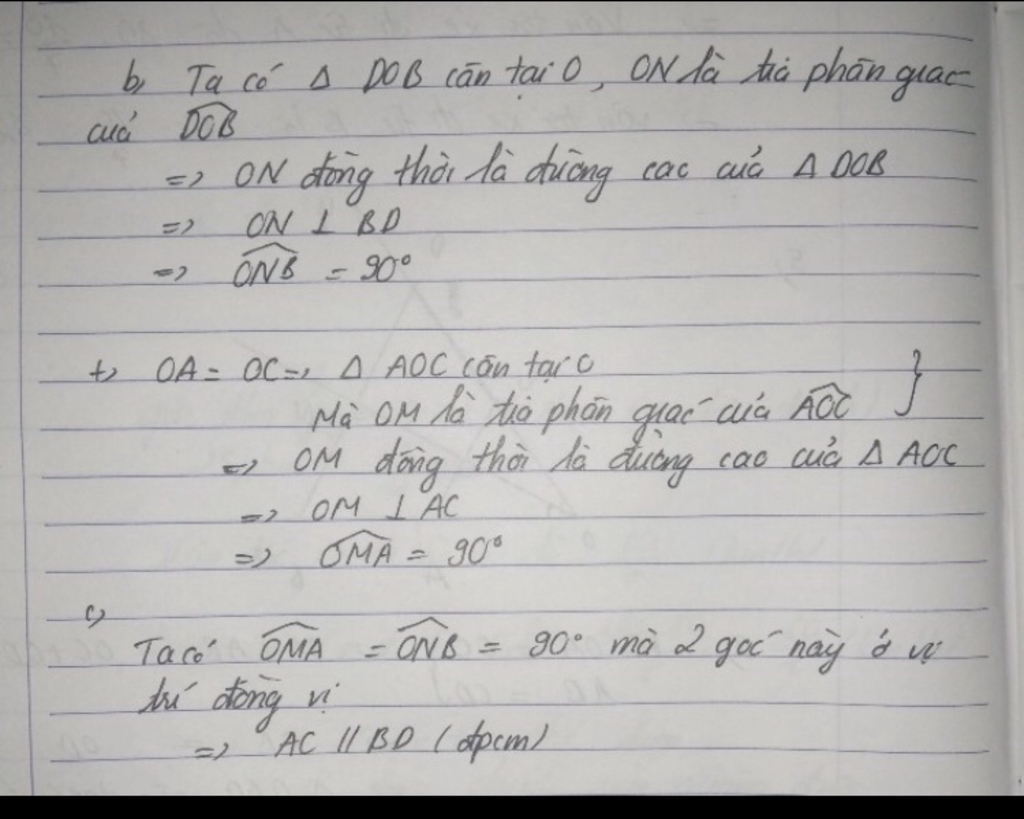 b, Ta có Δ DOB cân tại O, ON là tia phân giác
của \widehat{DOB}
=> ON đồng thời là đường cao của Δ DOB
=> ON ⊥ BD
=> \widehat{ONB} = 90°
+, OA = OC => Δ AOC cân tại O }
Mà OM là tia phân giác của \widehat{AOC}
=> OM đồng thời là đường cao của Δ AOC
=> OM ⊥ AC
=> \widehat{OMA} = 90°
c,
Ta có \widehat{OMA} = \widehat{ONB} = 90° mà 2 góc này ở vị
trí đồng vị
=> AC // BD (đpcm)